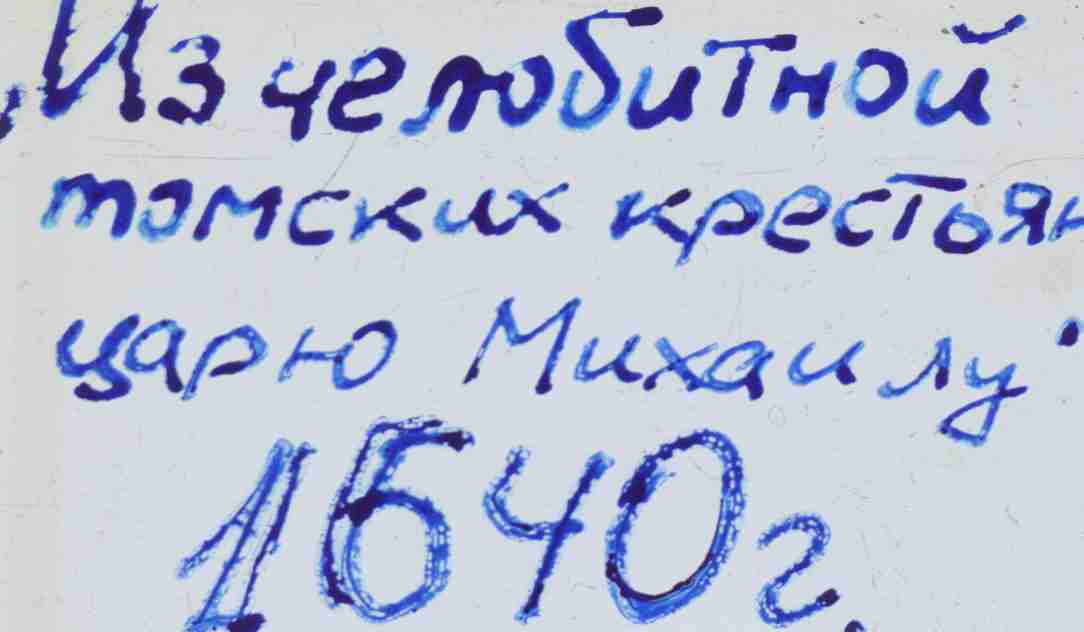 Из челобитной
томских крестьян
царю Михаилу
1640 г.